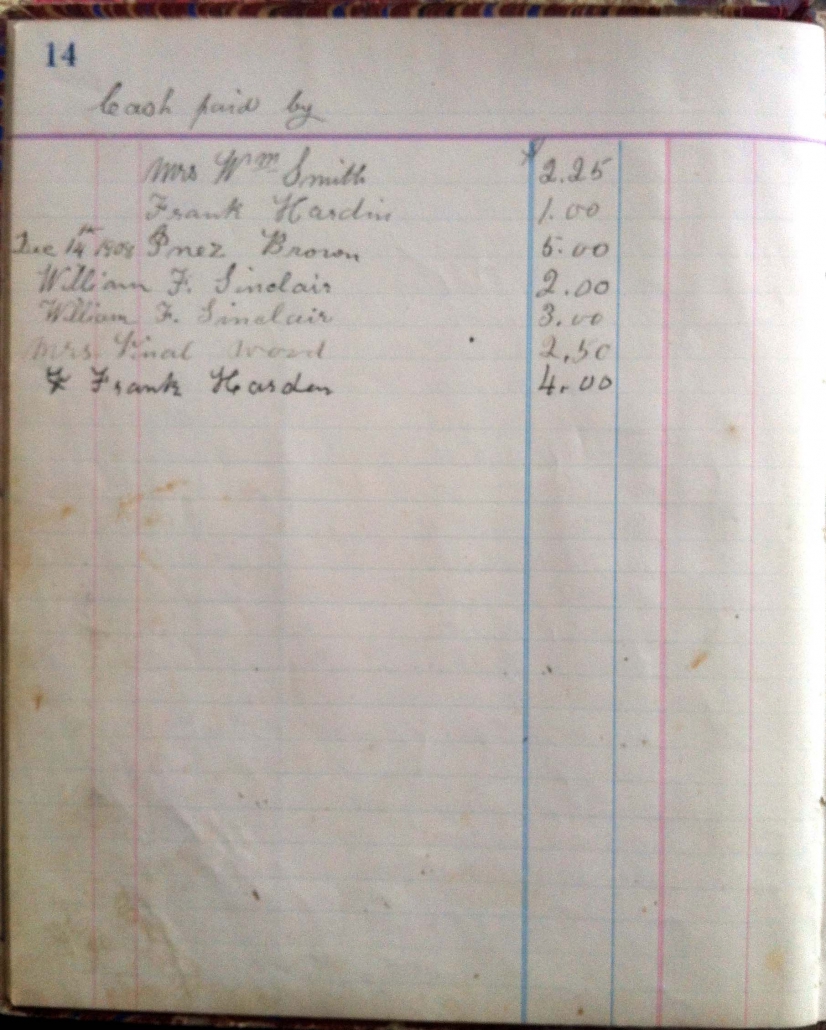 14
Cash paid by
Mrs Wm Smith $2.25
Frank Hardin 1.00
Dec 14th 1908 Inez Brown 5.00
William F. Sinclair 2.00
William F. Sinclair 3.00
Mrs Wood 2.50
Frank Harden 4.00